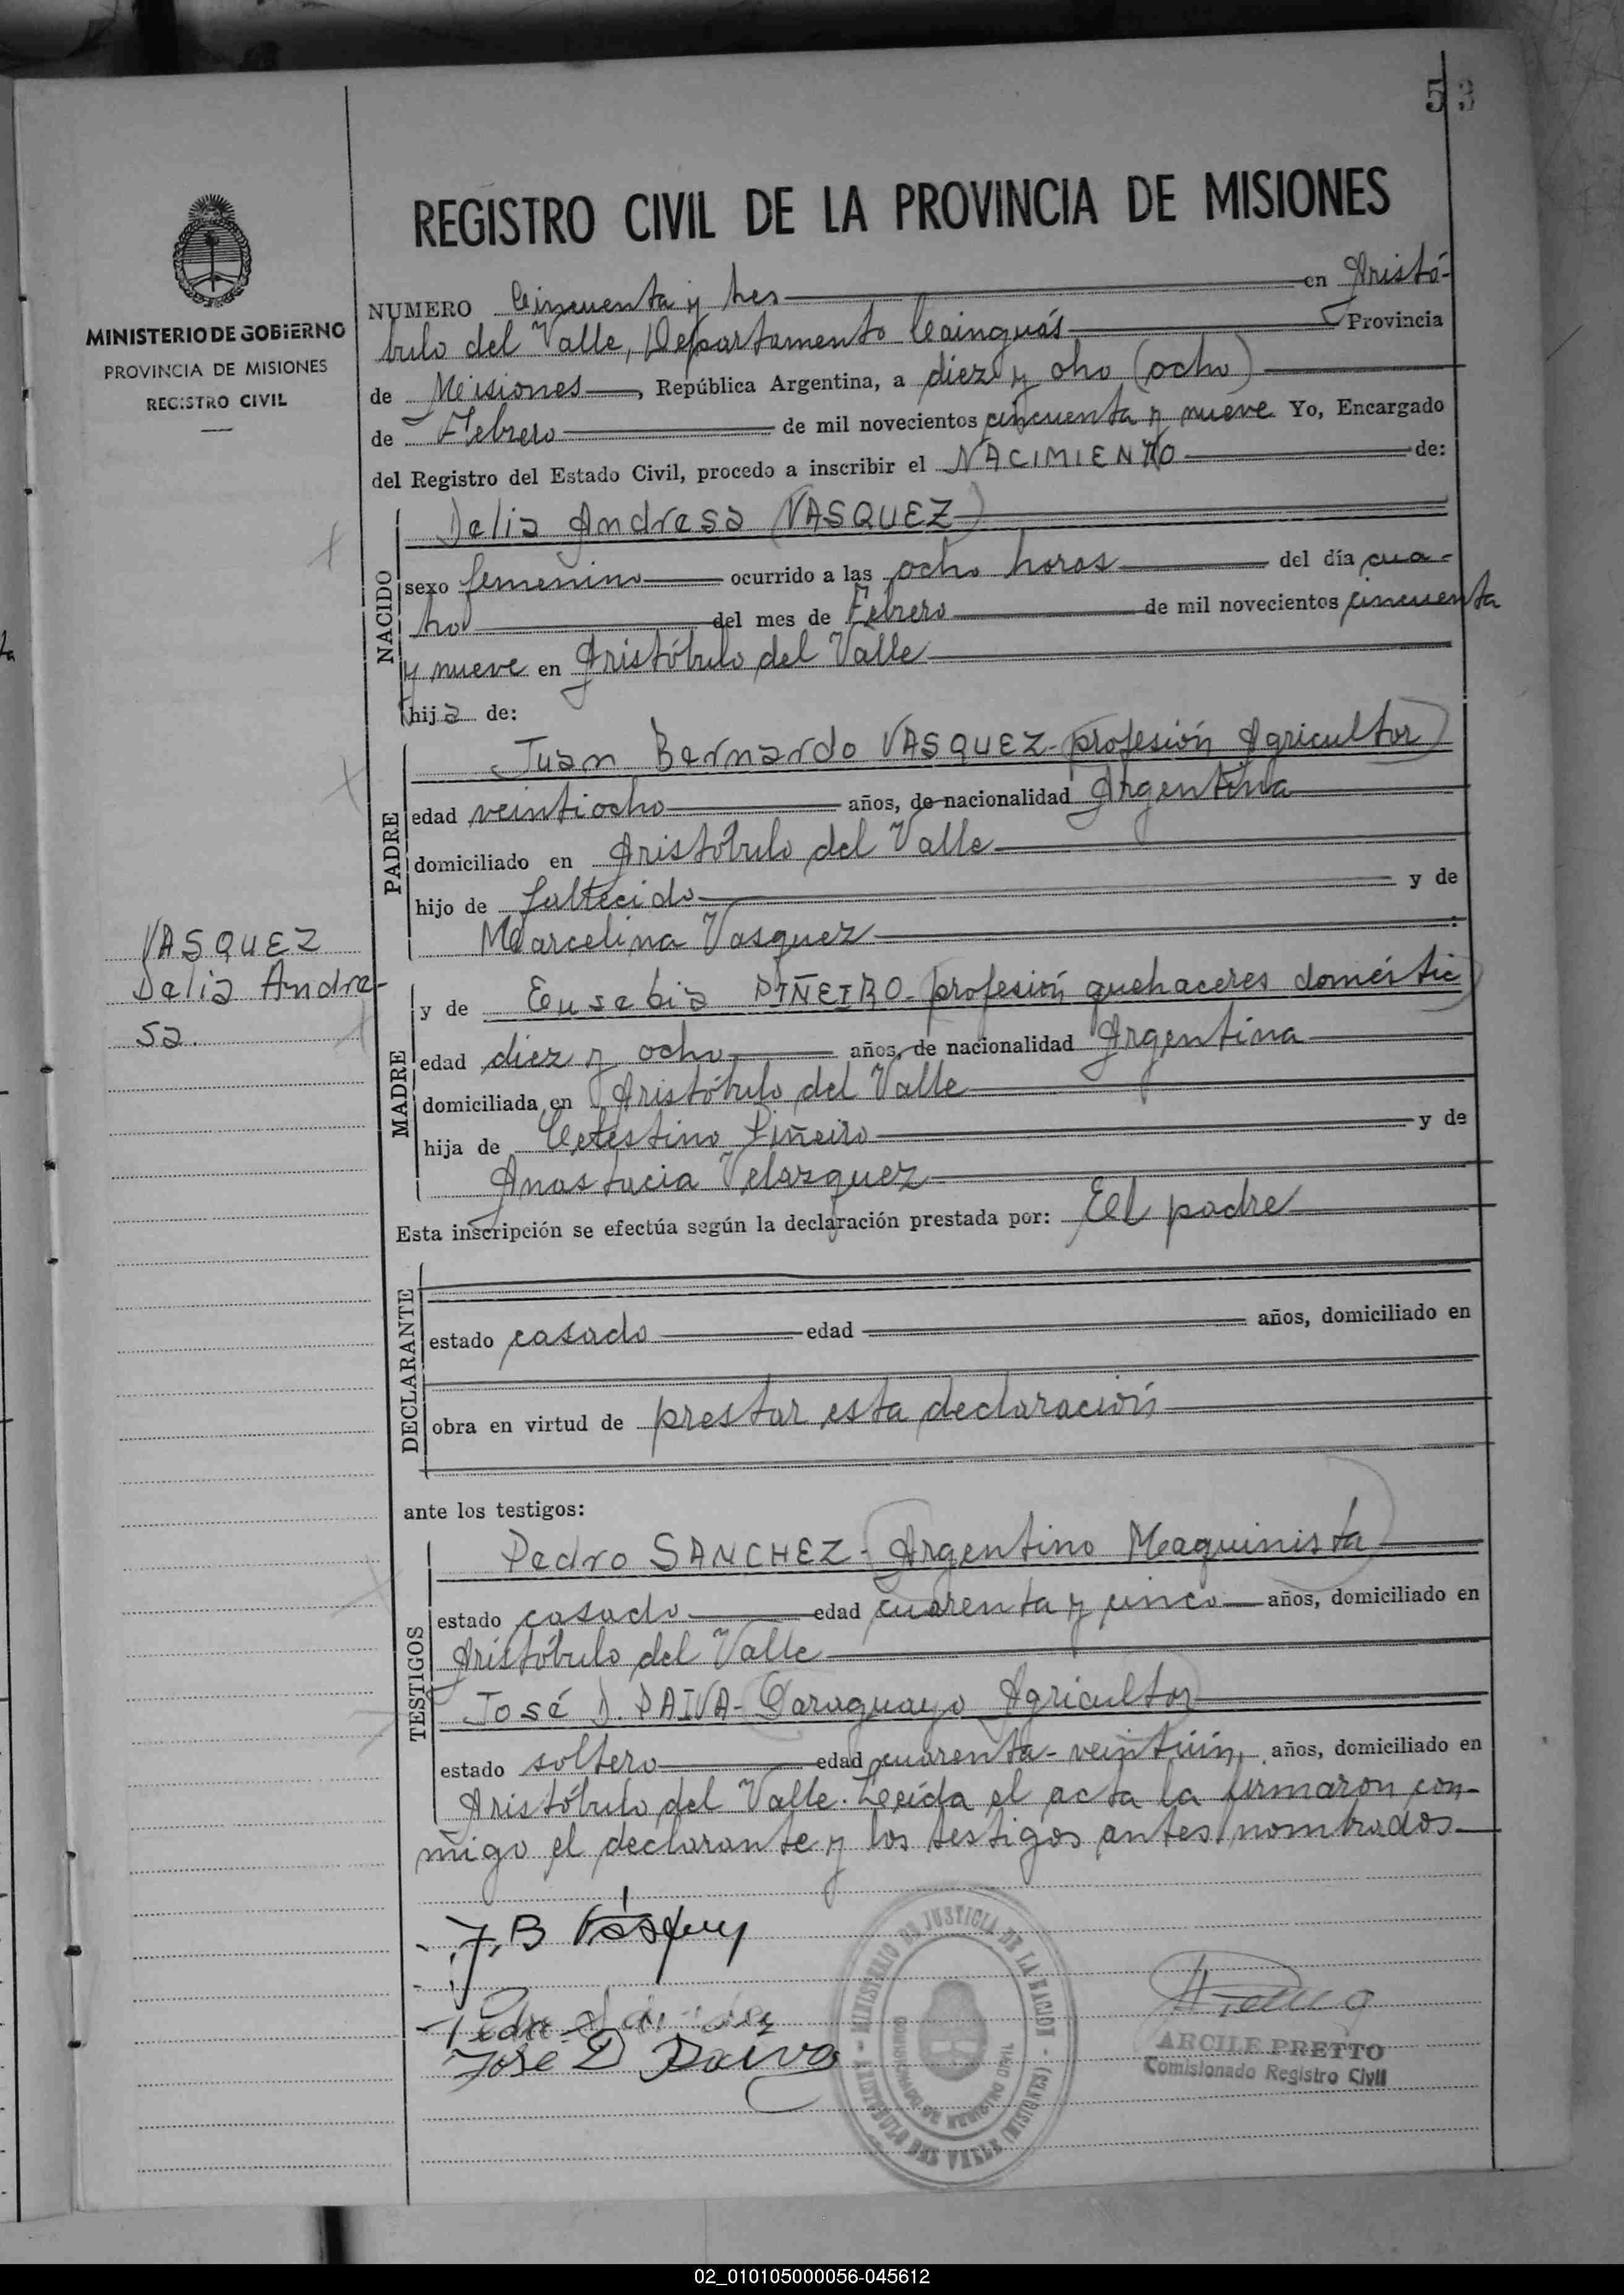 53
REGISTRO CIVIL DE LA PROVINCIA DE MISIONES
MINISTERIO DE GOBIERNO
PROVINCIA DE MISIONES
REGISTRO CIVIL
NUMERO Cincuenta y tres en Aristó-
bulo del Valle, Departamento Cainguás Provincia
de Misiones, República Argentina, a diez y oho (ocho)
de Febrero de mil novecientos cincuenta y nueve Yo, Encargado
del Registro del Estado Civil, procedo a inscribir el NACIMIENTO de:
NACIDO
Delia Andresa (VASQUEZ)
sexo femenino ocurrido a las ocho horas del día cua-
tro del mes de Febrero de mil novecientos cincuenta
y nueve en Aristóbulo del Valle
hija de:
PADRE
Juan Bernardo VASQUEZ- profesión Agricultor
edad veintiocho años, de nacionalidad Argentina
domiciliado en Aristóbulo del Valle
hijo de fallecido y de
Marcelina Vasquez :
VASQUEZ
Delia Andre-
sa.
MADRE
y de Eusebia PIÑEIRO- profesión quehaceres doméstic
edad diez y ocho años, de nacionalidad Argentina
domiciliada en Aristóbulo del Valle
hija de Celestino Piñeiro y de
Anastacia Velazquez
Esta inscripción se efectúa según la declaración prestada por: El padre
DECLARANTE
estado casado edad años, domiciliado en
obra en virtud de prestar esta declaración
ante los testigos:
TESTIGOS
Pedro SANCHEZ- Argentino Maquinista
estado casado edad cuarenta y cinco años, domiciliado en
Aristóbulo del Valle
José D. PAIVA- Paraguayo Agricultor
estado soltero edad cuarenta- veintiún, años, domiciliado en
Aristóbulo del Valle. Leída el acta la firmaron con-
migo el declarante y los testigos antes nombrados
J. B Vásquez
Pedro Sánchez
José D Paiva
MINISTERIO DE JUSTICIA DE LA NACION - ARISTOBULO DEL VALLE (MISIONES)
ARCILE PRETTO
Comisionado Registro Civil
02_010105000056-045612